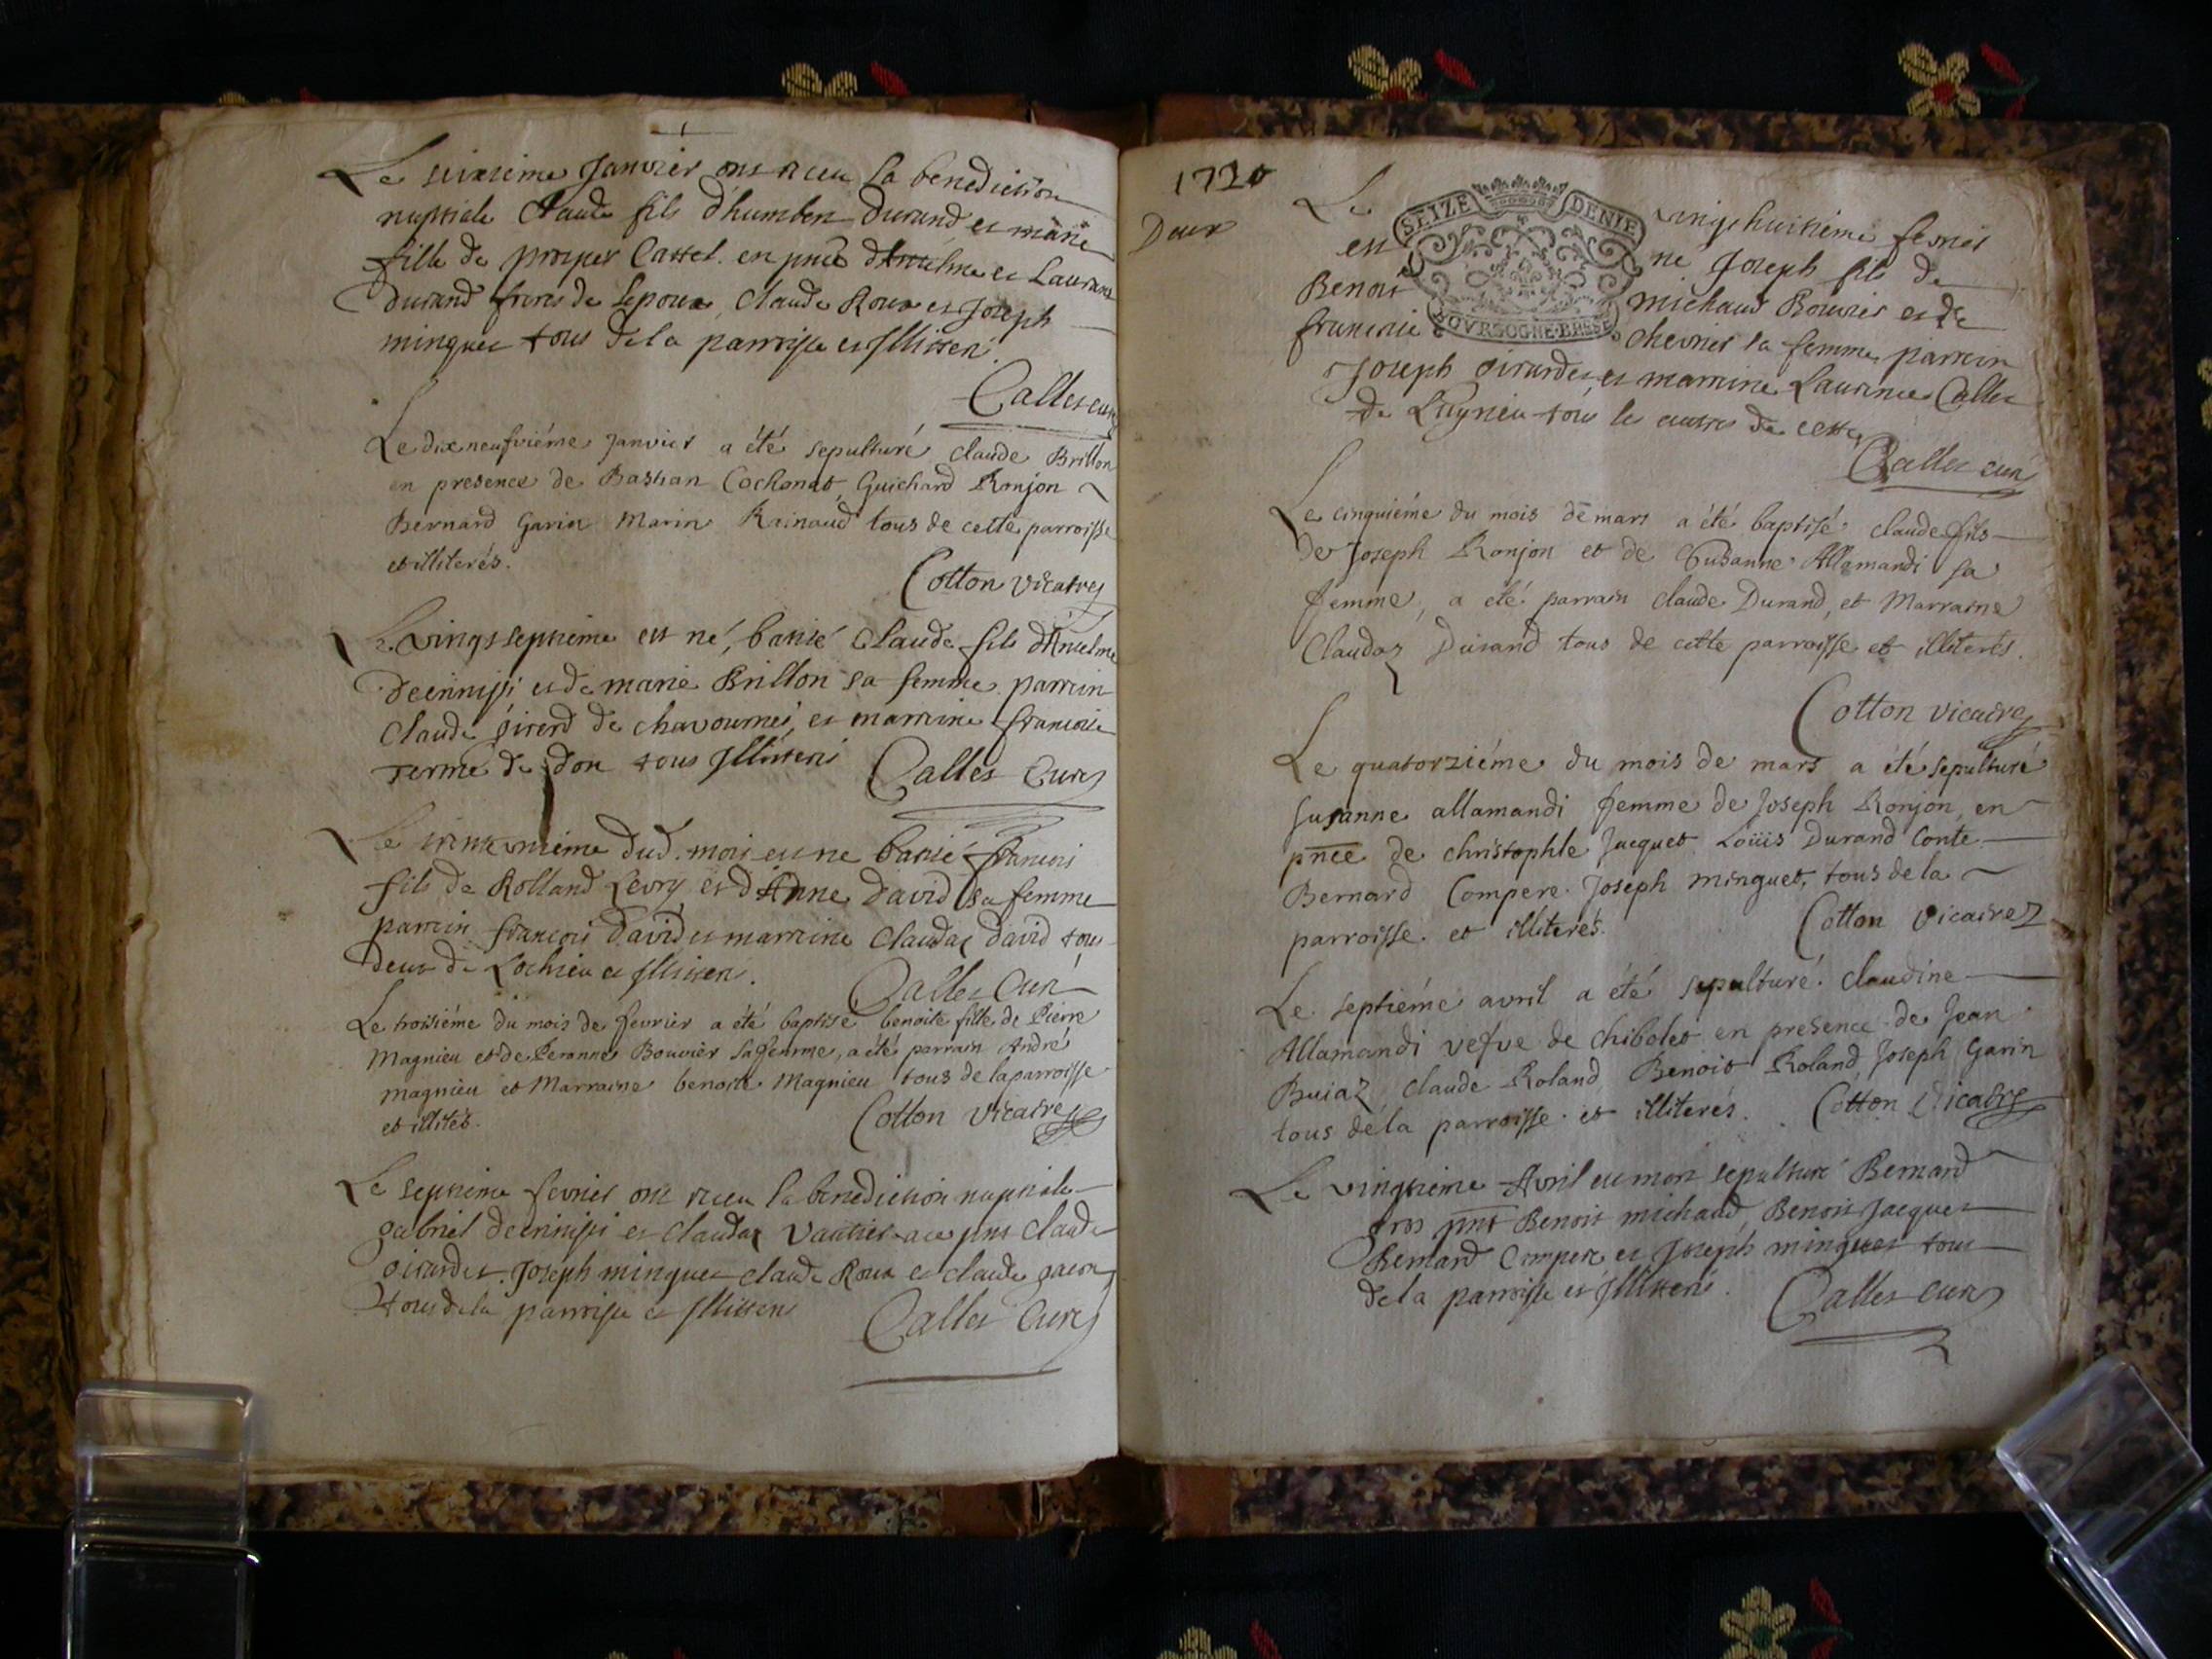 Le seizieme Janvier ont receu la benediction
nuptiale Claude fils d'humbert Durand et marie
fille de prosper Cattel en pnce d'Anselme et Laurent
Durand freres de Lepoux, Claude Roux et Joseph
minguet tous dela parroisse et Illitteré.
Callet curé
Le dixneufviéme janvier a été sepulturé claude Brillon
en presence de Bastian Cochonat, Guichard Ronjon
Bernard Garin Marin Rainaud tous de cette parroisse
et illiterés.
Cotton vicaire
Le vingtseptieme est né, batisé Claude fils d'Anselme
Decrinissi et de marie Brillon sa femme parrein
Claude Girerd de chavournei, et marreine francoise
de don tous Illitteré
Callet Curé
Le trenteunieme dud. mois est ne batisé francois
fils de Rolland Levry et d'Anne David sa femme
parrein francois David et marreine Claudaz David tous
deux de Lochieu et Illiteré.
Callet Curé
Le troisiéme du mois de fevrier a été baptisé benoite fille de Pierre
Magnieu et de Peronne Bouvier sa femme, a été parrain André
magnieu et Marraine benoite Magnieu tous de laparroisse
et illités.
Cotton vicaire
Le septieme fevrier ont receu la benediction nuptiale
gabriel Decrinissi et Claudaz Vautier ace pnts Claude
girardet. Joseph minguet claude Roux et claude
tous dela parroisse et Illitteré
Callet Curé
1720
Deux
SEIZE DENIE
BOVRGOGNE·BRESSE
Le vingthuitieme fevrier
est ne Joseph fils de
Benoit michaud Bouvier et de
francoise chevrier sa femme parrein
Joseph girardet et marreine Laurence Callet
de Lagnieu tous les autres de cette
Callet curé
Le cinquiéme du mois de mars a été baptisé claude fils
de Joseph Ronjon et de Susanne Allemandi sa
femme, a été parrain claude Durand, et Marraine
Claudaz Durand tous de cette parroisse et illiterés.
Cotton vicaire
Le quatorziéme du mois de mars a été sepulturé
Susanne allamandi femme de Joseph Ronjon, en
pnce de christophle Jacquet Loüis Durand Conte
Bernard Compere Joseph minguet, tous de la
parroisse et illiterés.
Cotton vicaire
Le septiéme avril a été sepulturé claudine
Allamandi vefve de chibolet en presence de Jean
Buiaz, claude Roland Benoit Roland Joseph Garin
tous déla parroisse et illiterés.
Cotton vicaire
Le vingtieme Avril est mort sepulturé Bernard
gros pnt Benoit michaud, Benoit Jacquet
Bernard Compere et Joseph minguet tous
dela parroisse et Illitteré.
Callet curé